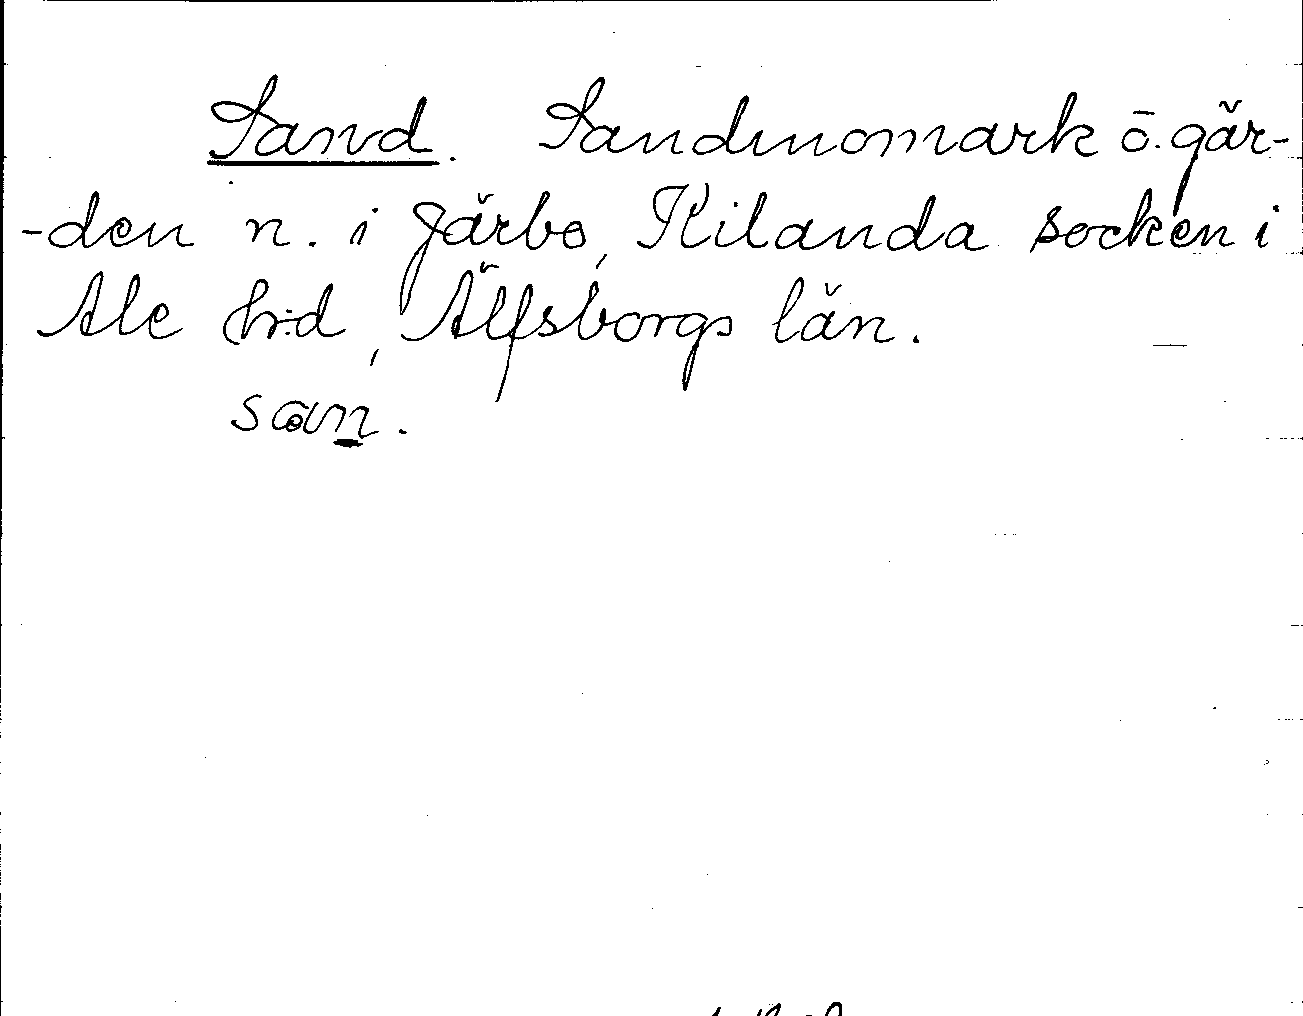 Sand. Sandmomark ö. gär-
-den n. i Järbo, Kilanda socken i
Ale h:d, Älfsborgs län.
san.